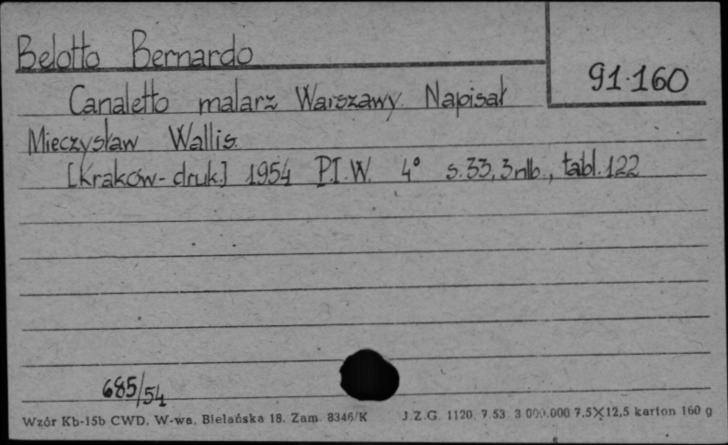 Belotto Bernardo
91.160
Canaletto malarz Warszawy. Napisał
Mieczysław Wallis.
[Kraków-druk.] 1954 P.I.W. 4° s.33, 3nlb., tabl.122
685/54
Wzór Kb-15b CWD. W-wa, Bielańska 18. Zam. 8346/K J.Z.G. 1120. 7.53. 3 000.000 7,5×12,5 karton 160 g